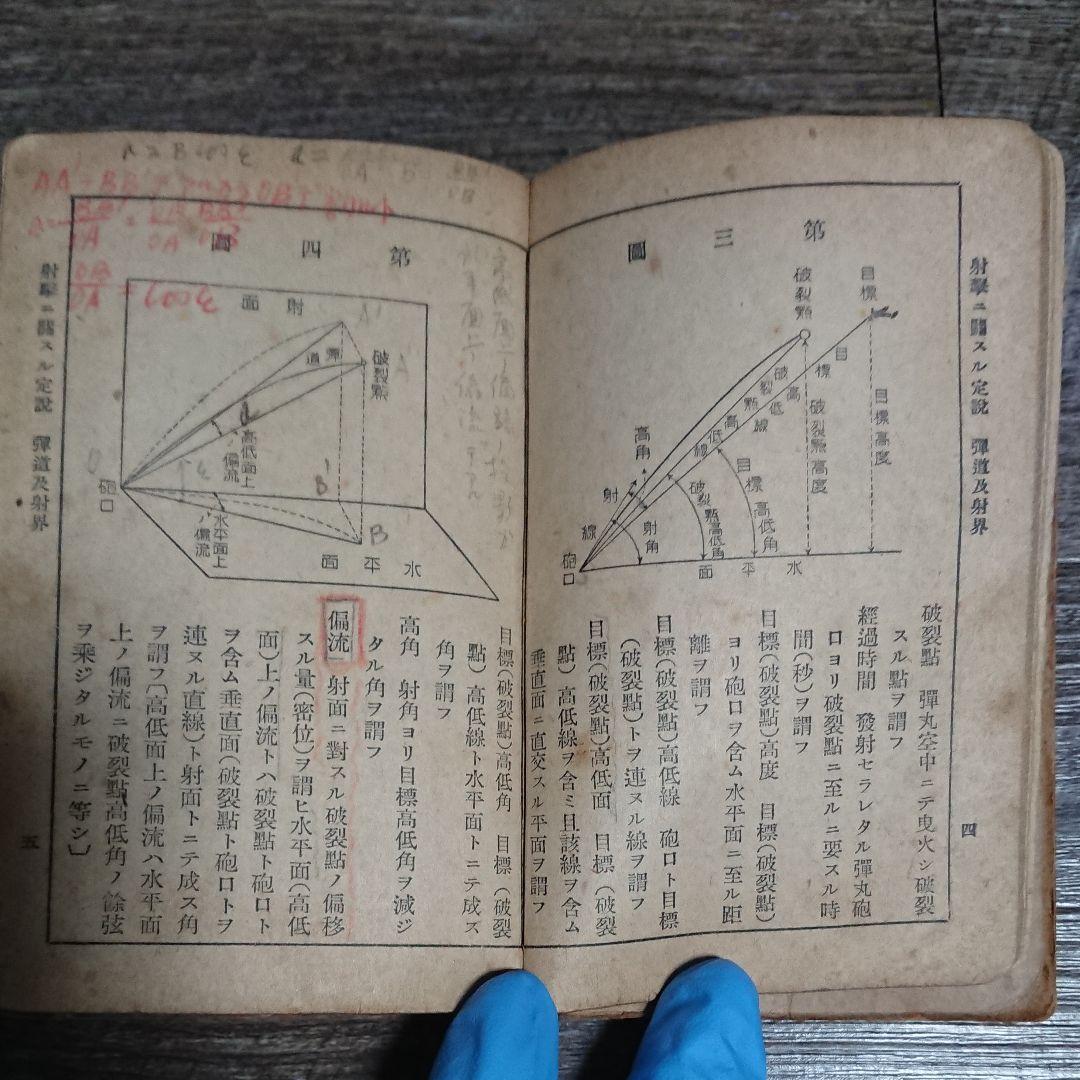 射擊ニ關スル定說 彈道及射界
四
第三圖
目標
破裂點
目標高度
破裂點高度
目標高低線
破裂點高低線
高角
射角
射線
目標高低角
破裂點高低角
砲口
水平面
破裂點 彈丸空中ニテ曳火シ破裂
スル點ヲ謂フ
經過時間 發射セラレタル彈丸砲
口ヨリ破裂點ニ至ルニ要スル時
間(秒)ヲ謂フ
目標(破裂點)高度 目標(破裂點)
ヨリ砲口ヲ含ム水平面ニ至ル距
離ヲ謂フ
目標(破裂點)高低線 砲口ト目標
(破裂點)トヲ連ヌル線ヲ謂フ
目標(破裂點)高低面 目標(破裂
點)高低線ヲ含ミ且該線ヲ含ム
垂直面ニ直交スル平面ヲ謂フ
第四圖
射面
彈道
破裂點
高低面上ノ偏流
水平面上ノ偏流
砲口
水平面
A'
A
B'
B
目標(破裂點)高低角 目標(破裂
點)高低線ト水平面トニテ成ス
角ヲ謂フ
高角 射角ヨリ目標高低角ヲ減ジ
タル角ヲ謂フ
偏流 射面ニ對スル破裂點ノ偏移
スル量(密位)ヲ謂ヒ水平面(高低
面)上ノ偏流トハ破裂點ト砲口ト
ヲ含ム垂直面(破裂點ト砲口トヲ
連ヌル直線)ト射面トニテ成ス角
ヲ謂フ〔高低面上ノ偏流ハ水平面
上ノ偏流ニ破裂點高低角ノ餘弦
ヲ乘ジタルモノニ等シ〕
射擊ニ關スル定說 彈道及射界
五